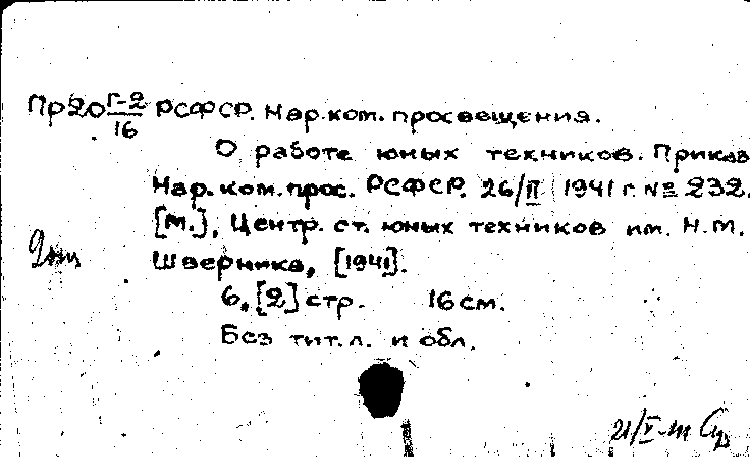 Пр20 Г-2/16 РСФСР. Нар.ком. просвещения.
О работе юных техников. Приказ
Нар.ком.прос. РСФСР. 26/II 1941 г. № 232.
[М.], Центр. ст. юных техников им. Н.М.
Шверника, [1941].
6, [2] стр. 16 см.
Без тит. л. и обл.
21/V